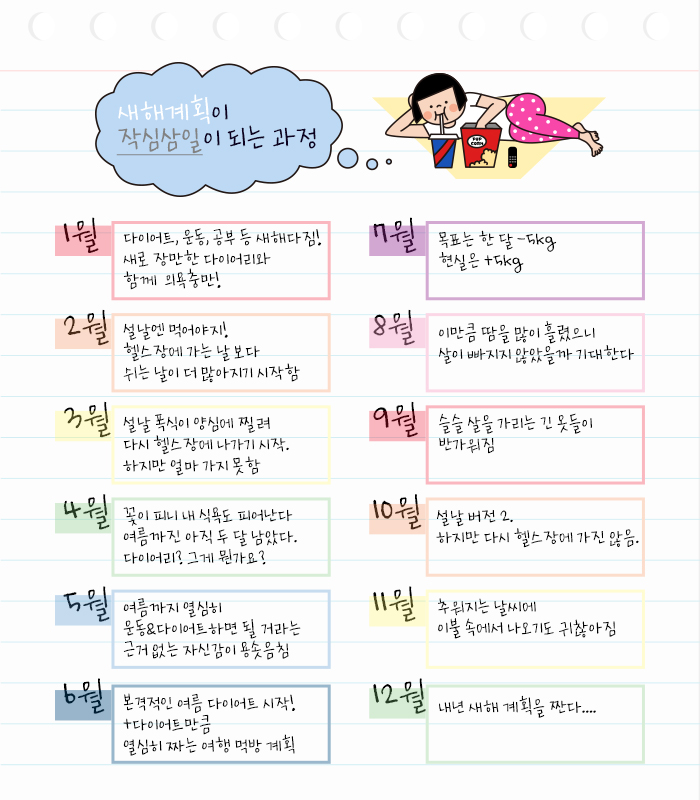 새해계획이
작심삼일이 되는 과정
POP
CORN
1월
다이어트, 운동, 공부 등 새해다짐!
새로 장만한 다이어리와
함께 의욕충만!
2월
설날엔 먹어야지!
헬스장에 가는 날보다
쉬는 날이 더 많아지기 시작함
3월
설날 폭식이 양심에 찔려
다시 헬스장에 나가기 시작.
하지만 얼마 가지 못함
4월
꽃이 피니 내 식욕도 피어난다
여름까진 아직 두 달 남았다.
다이어리? 그게 뭔가요?
5월
여름까지 열심히
운동&다이어트하면 될 거라는
근거 없는 자신감이 용솟음침
6월
본격적인 여름 다이어트 시작!
+다이어트만큼
열심히 짜는 여행 먹방 계획
7월
목표는 한 달 -5kg
현실은 +5kg
8월
이만큼 땀을 많이 흘렸으니
살이 빠지지 않았을까 기대한다
9월
슬슬 살을 가리는 긴 옷들이
반가워짐
10월
설날 버전 2.
하지만 다시 헬스장에 가진 않음.
11월
추워지는 날씨에
이불 속에서 나오기도 귀찮아짐
12월
내년 새해 계획을 짠다....